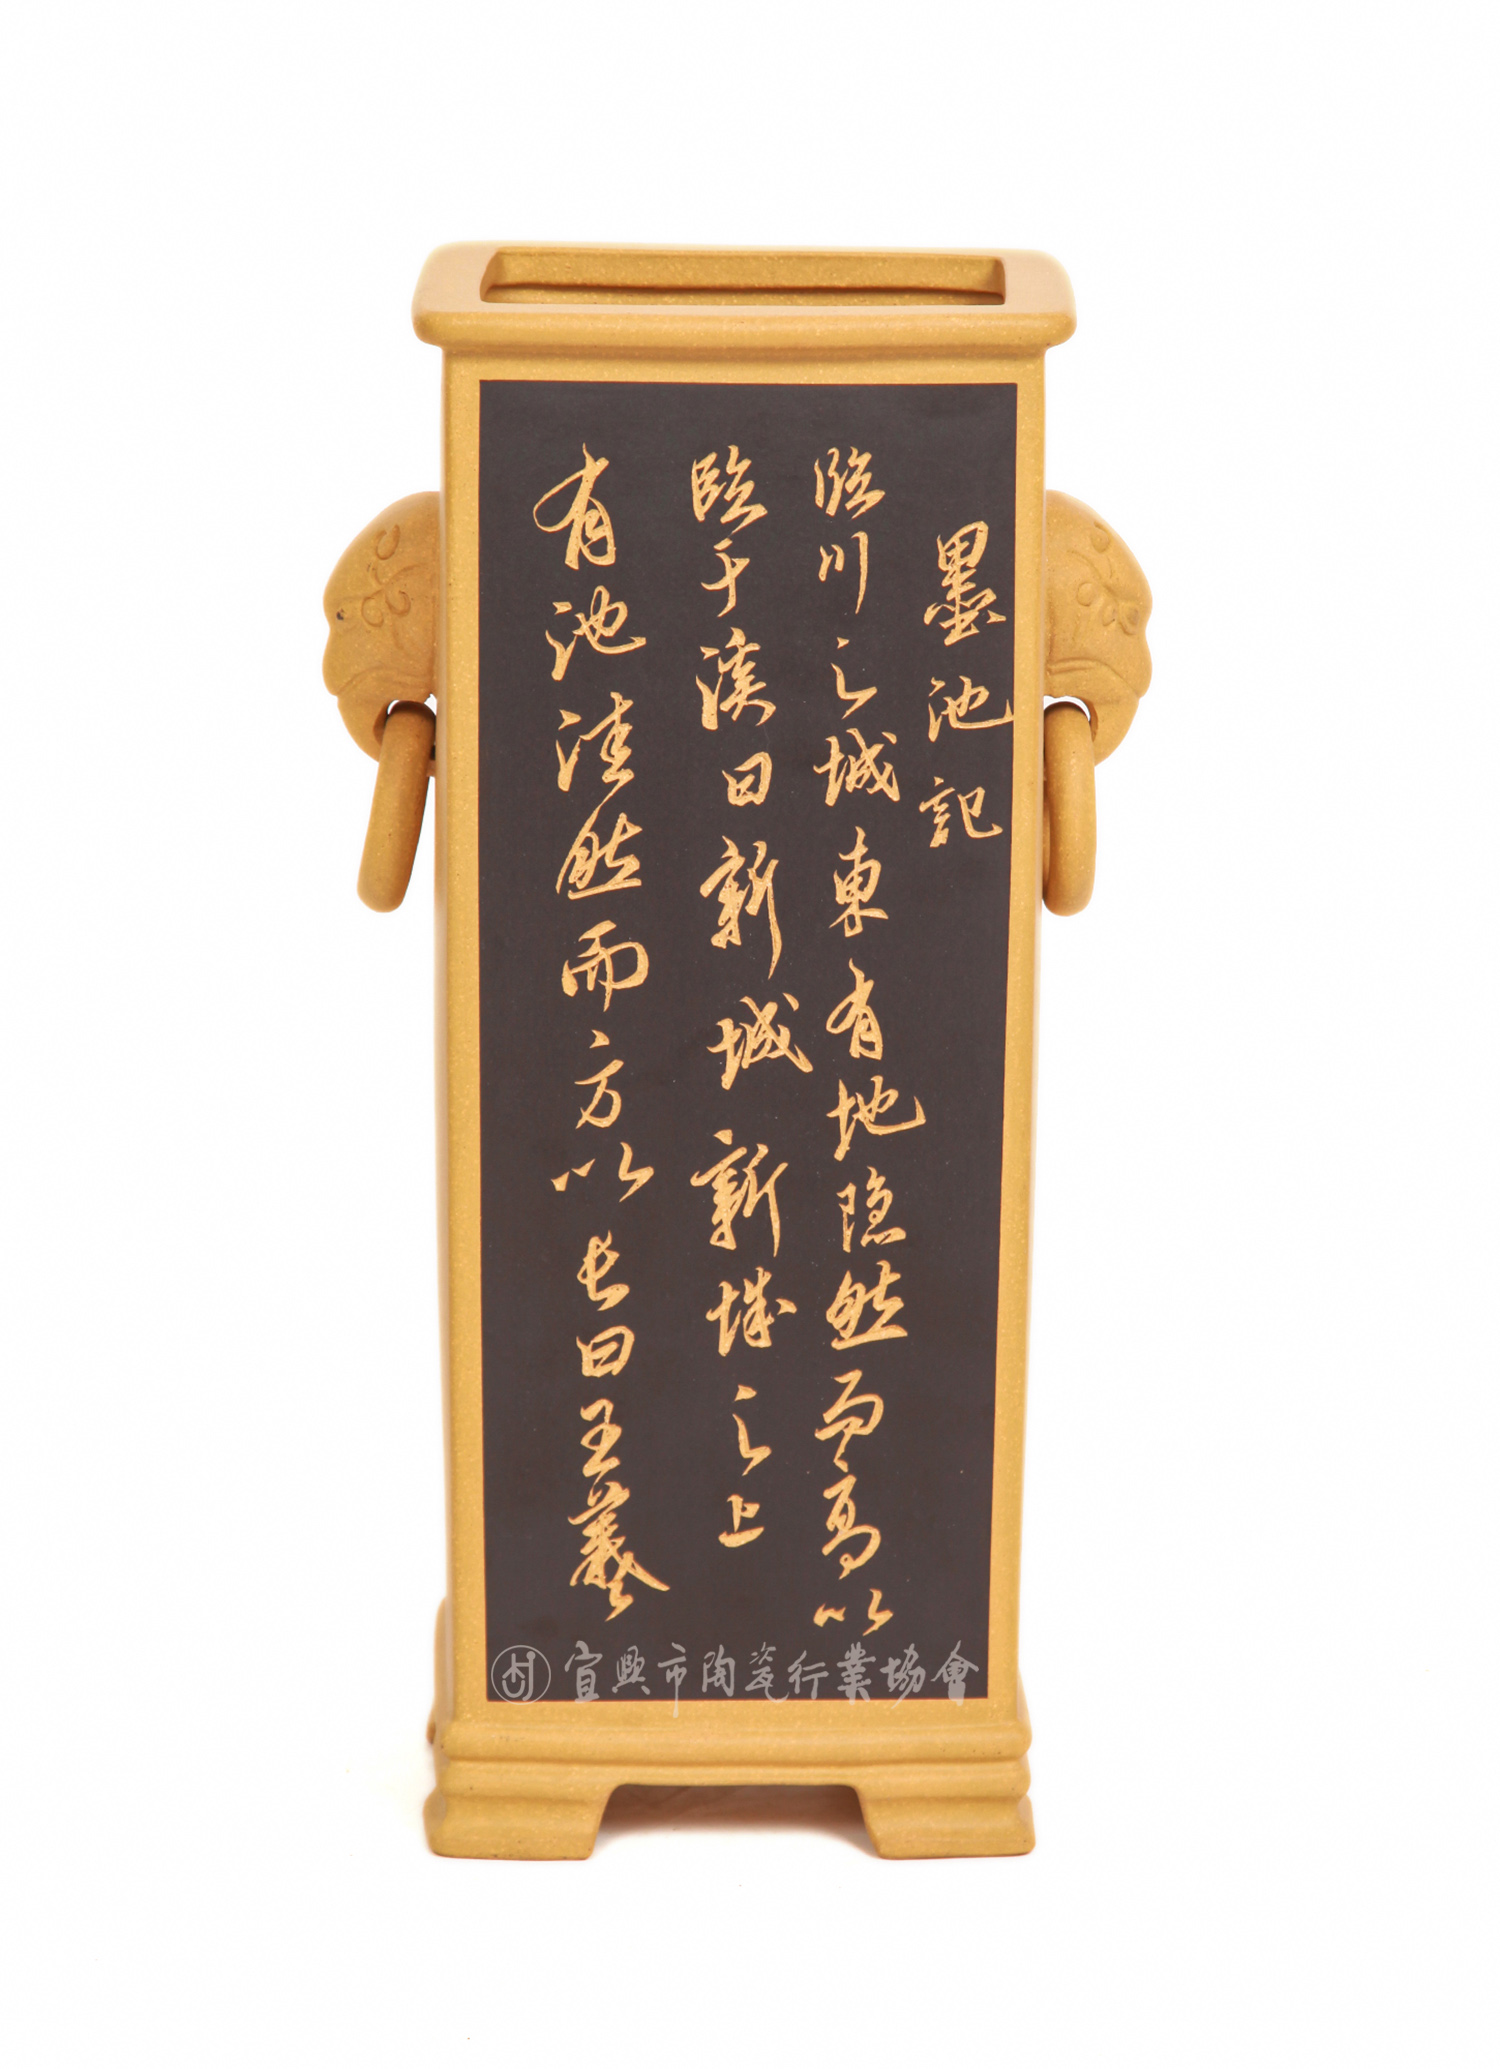 墨池記
臨川之城東有地隐然而高以
臨于溪曰新城新城之上
有池洼然而方以长曰王羲
宜興市陶瓷行業協會